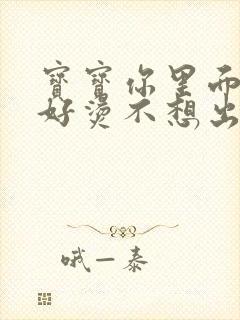 寶寶你里面
好燙不想出
哦一泰